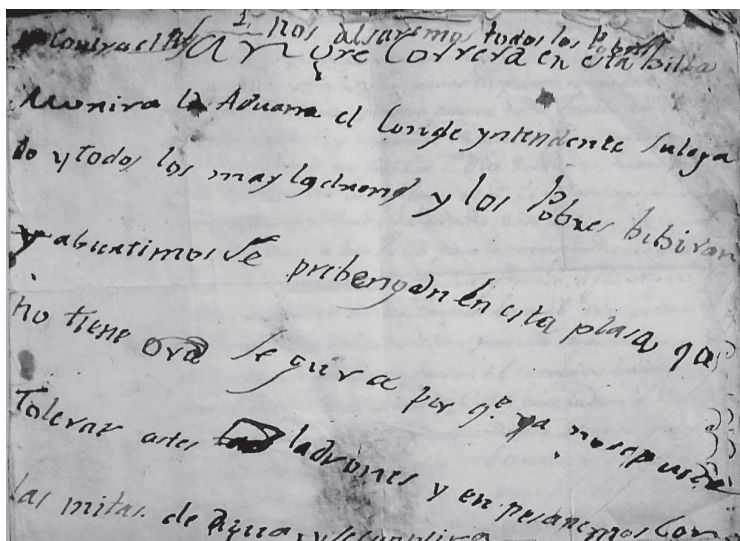 nos alsaremos todos los Pobres
Contra el Rey Sangre Correra en esta billa
Morira la Aduana el Conde yntendente Su loya
do y todos los may ladrones y los Pobres bibiran
y aburtimos Se prebengan En esta plasa q ya
no tiene ora Segura por q.e ya no se puede
Tolerar a estes ladrones y en pesaremos Con
las mitas. de